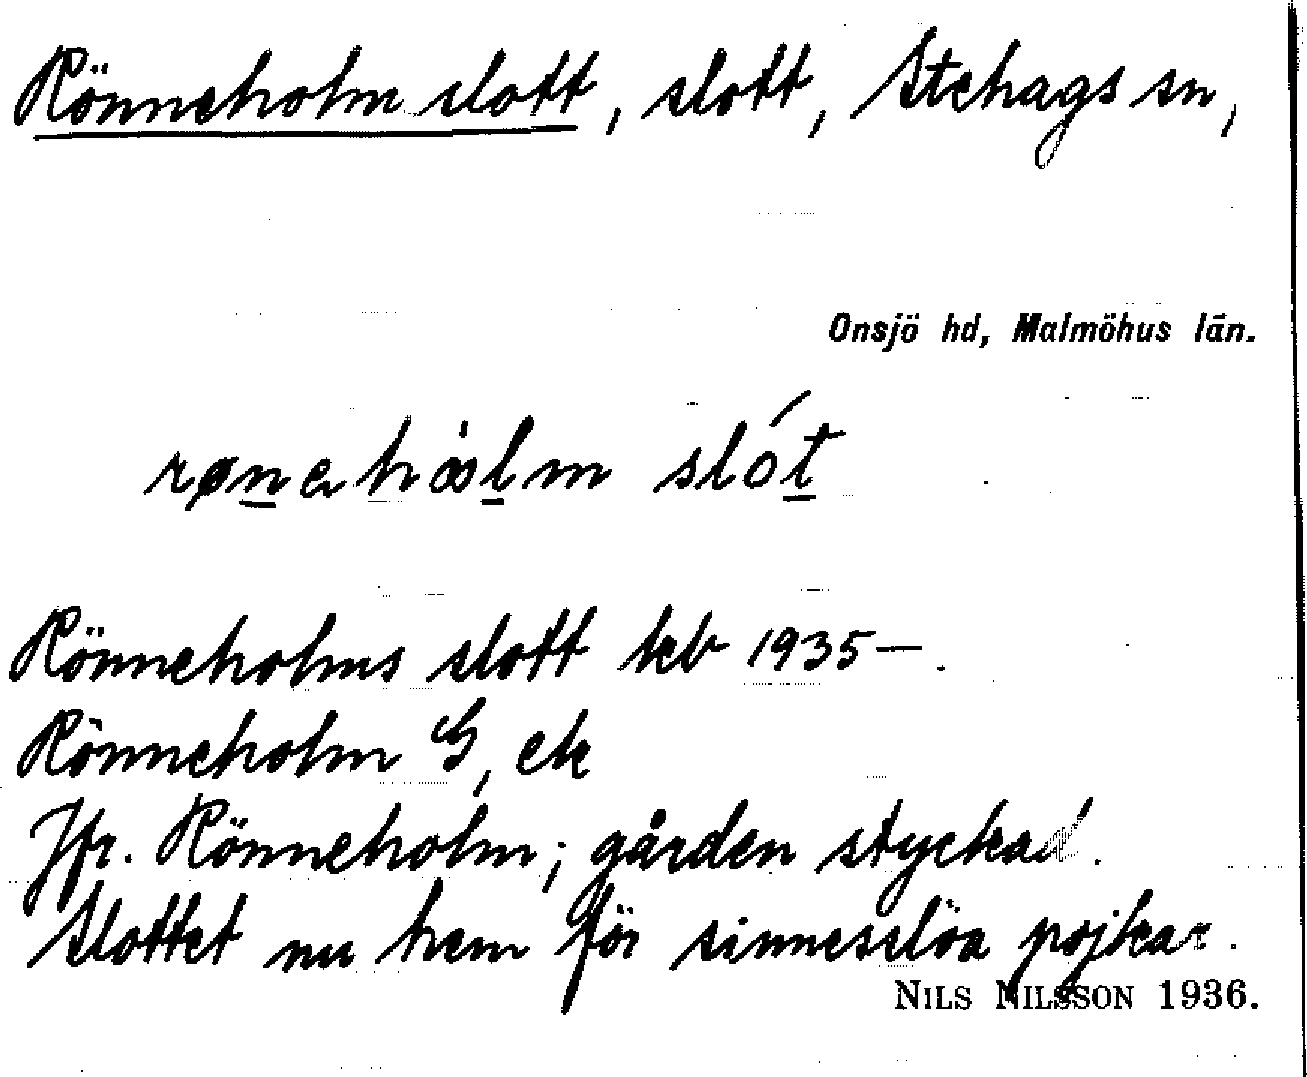 Rönneholm slott, slott, Stehags sn,
Onsjö hd, Malmöhus län.
slót
Rönneholms slott 1935—.
Rönneholm G, ek
Jfr. Rönneholm; gården styckad.
Slottet nu hem för sinnesslöa pojkar.
NILS NILSSON 1936.